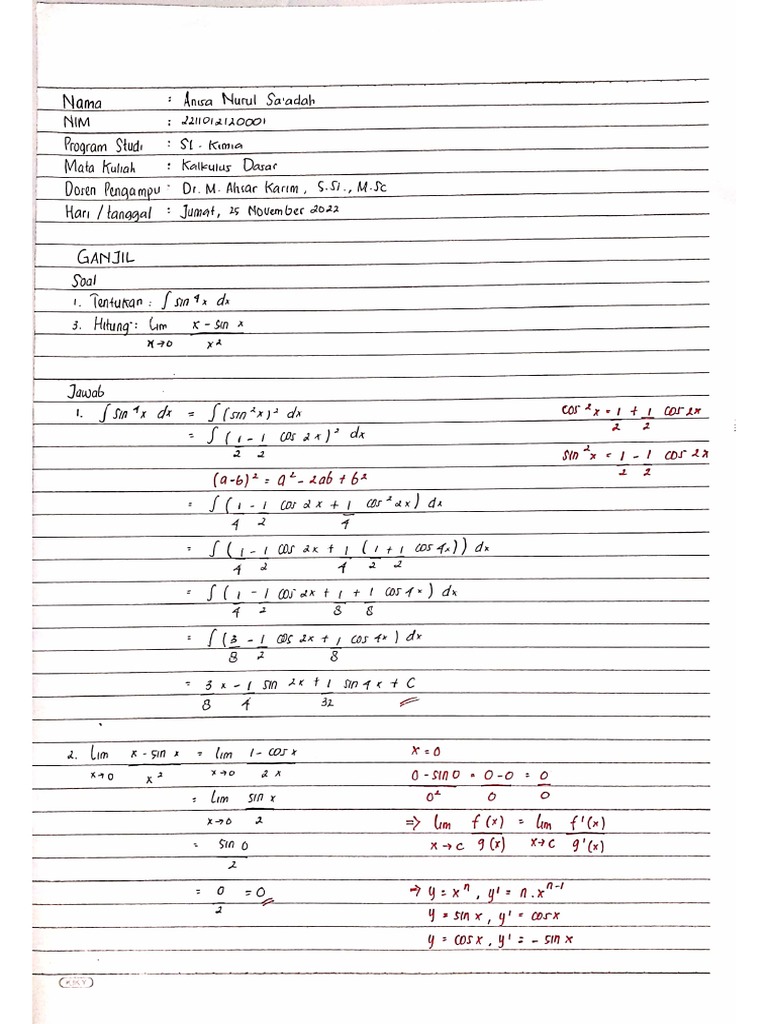 Nama : Anisa Nurul Sa'adah
NIM : 2211012120001
Program Studi : S1 - Kimia
Mata Kuliah : Kalkulus Dasar
Dosen Pengampu : Dr. M. Ahsar Karim, S.Si., M.Sc
Hari / tanggal : Jumat, 25 November 2022
GANJIL
Soal
1. Tentukan : ∫ sin⁴x dx
3. Hitung : lim x→0 (x - sin x)/x²
Jawab
1. ∫ sin⁴x dx = ∫ (sin²x)² dx
= ∫ (1/2 - 1/2 cos 2x)² dx
(a-b)² = a² - 2ab + b²
= ∫ (1/4 - 1/2 cos 2x + 1/4 cos² 2x) dx
= ∫ (1/4 - 1/2 cos 2x + 1/4 (1/2 + 1/2 cos 4x)) dx
= ∫ (1/4 - 1/2 cos 2x + 1/8 + 1/8 cos 4x) dx
= ∫ (3/8 - 1/2 cos 2x + 1/8 cos 4x) dx
= 3/8 x - 1/4 sin 2x + 1/32 sin 4x + C
cos²x = 1/2 + 1/2 cos 2x
sin²x = 1/2 - 1/2 cos 2x
2. lim x→0 (x - sin x)/x² = lim x→0 (1 - cos x)/2x
= lim x→0 sin x/2
= sin 0/2
= 0/2 = 0
x = 0
(0 - sin 0)/0² = (0 - 0)/0 = 0/0
=> lim x→c f(x)/g(x) = lim x→c f'(x)/g'(x)
→ y = xⁿ, y' = n.xⁿ⁻¹
y = sin x, y' = cos x
y = cos x, y' = - sin x
KKY